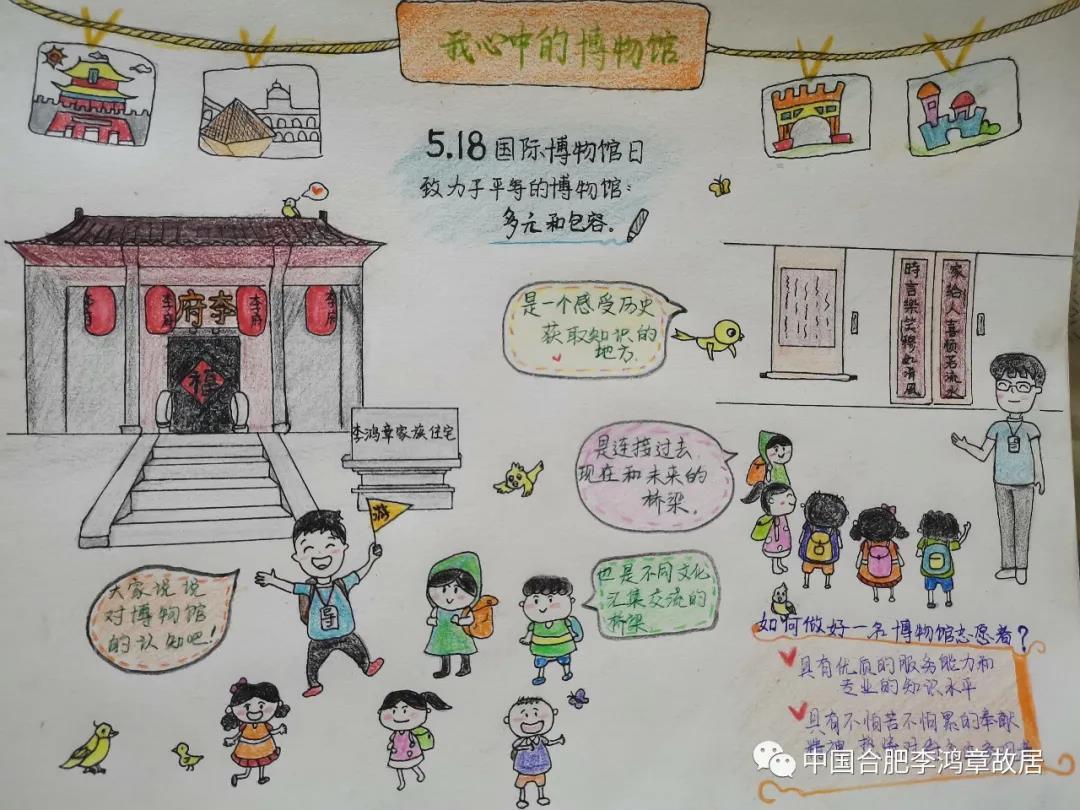 我心中的博物馆
5.18国际博物馆日
致力于平等的博物馆:
多元和包容.
李府
李府
李府
李府
李府
福
李鸿章家族住宅
是一个感受历史
获取知识的
地方.
時言樂
家給人喜
是连接过去.
现在和未来的
桥梁.
游
导
大家说说
对博物馆
的认知吧!
也是不同文化
汇集交流的
桥梁
如何做好一名博物馆志愿者?
具有优质的服务能力和
专业的知识水平
具有不怕苦不怕累的奉献
精神
中国合肥李鸿章故居